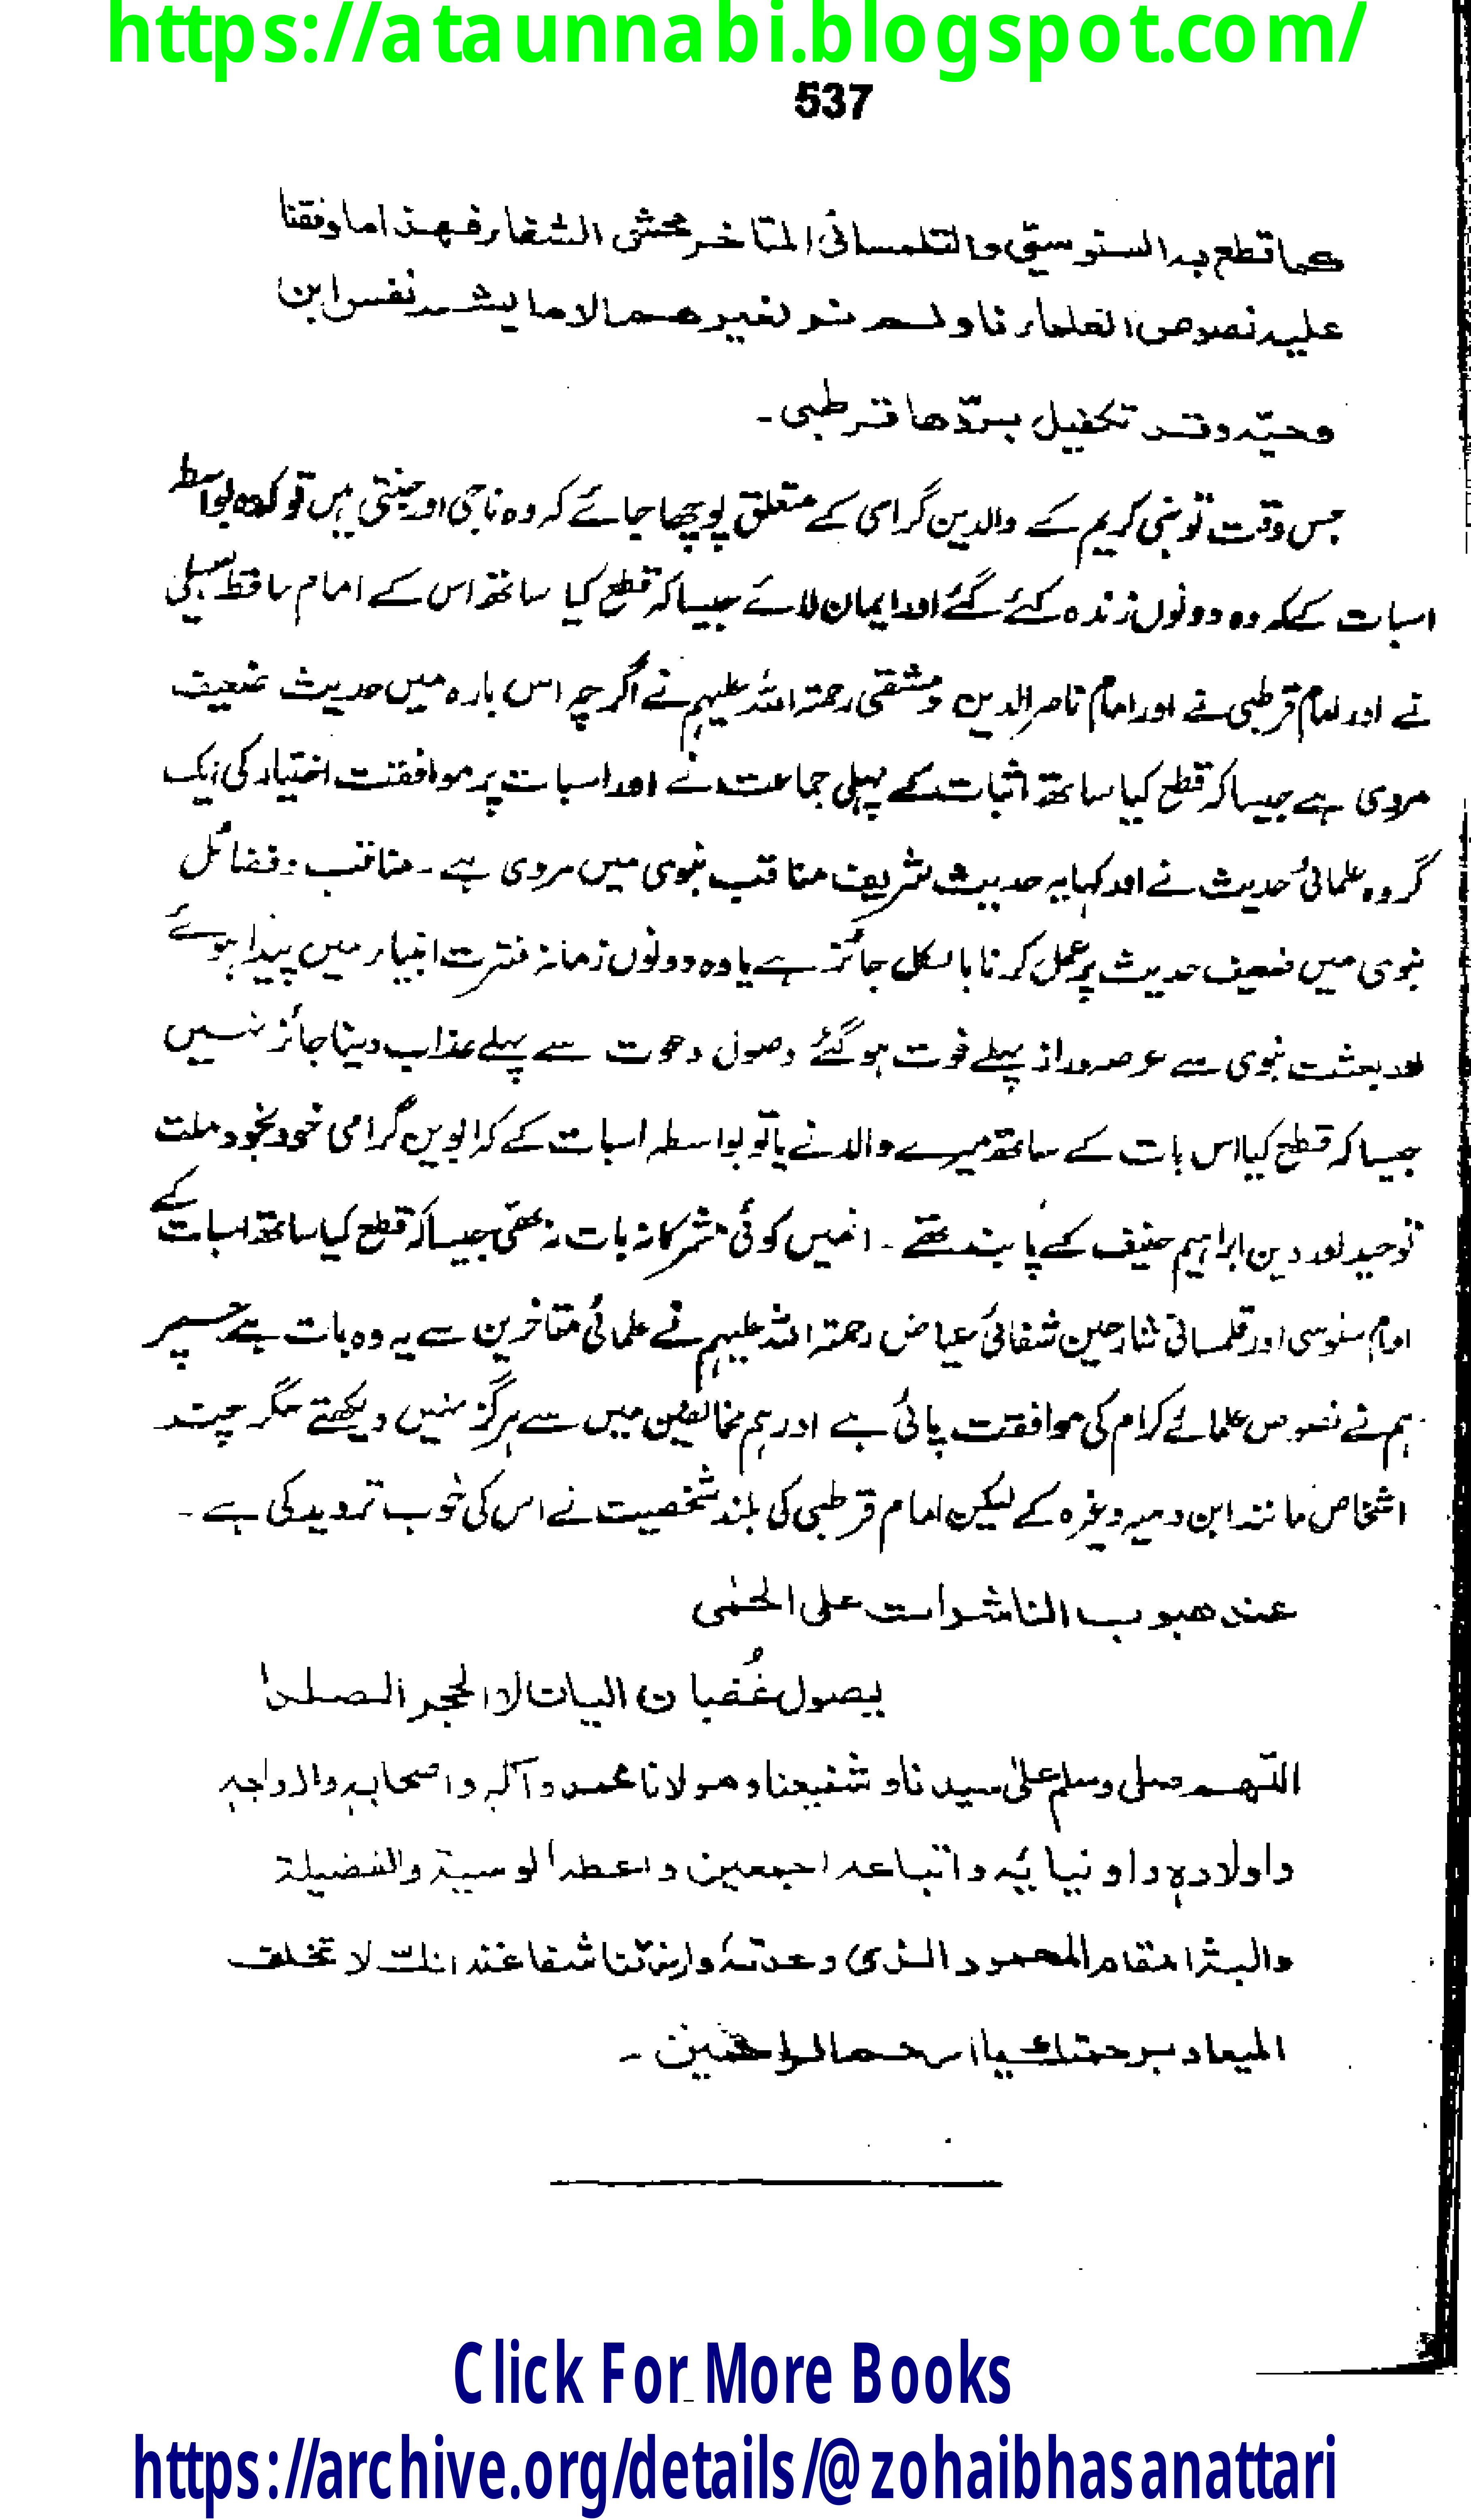 https://ataunnabi.blogspot.com/
537
كما قطع به السنوسیّ والتلمسانی المتاخر محشی الشفاء فهذا ما وفقنا
علیه نصوص العلماء نا ولم نر لغیرهما الا ما یشد نفس ابن
وحیّه وقد تکفیل بردّها قرطبی۔
جس وقت تو نبی کریم کے والدین گرامی کے متعلق پوچھا جائے کہ وہ ناجی اور جنتی ہیں تو کہہ بواسطہ
اسبات کے کہ وہ دونوں زندہ کئے گئے اور ایمان لائے جیسا کہ قطع کیا ساتھ اس کے امام حافظ سہیلی
نے اور امام قرطبی نے اور امام ناصر الدین دمشقی رحمۃ اللہ علیہم نے اگرچہ اس بارہ میں حدیث ضعیف
مروی ہے جیسا کہ قطع کیا ساتھ اثبات کے پہلی جماعت نے اور اسبات پر موافقت اختیار کی ایک
گروہ علمائ حدیث نے اور کہا یہ حدیث شریف مناقب نبوی میں مروی ہے۔ مناقب و فضائل
نبوی میں ضعیف حدیث پر عمل کرنا بالکل جائز ہے یا وہ دونوں زمانہ فترت انبیاء میں پیدا ہوئے
اور بعثت نبوی سے عرصہ دراز پہلے فوت ہو گئے وصول دعوت سے پہلے عذاب دینا جائز نہیں
جیسا کہ قطع کیا اس بات کے ساتھ میرے والد نے یا تو بواسطہ اسبات کے کہ ابوین گرامی خود بخود ملت
توحید اور دین ابراہیم حنیف کے پابند تھے۔ انہیں کوئی مشرکانہ بات نہ تھی جیسا کہ قطع کیا ساتھ اسبات کے
امام سنوسی اور تلمسانی شارحین شفائ عیاض رحمۃ اللہ علیہم نے علمائ متاخرین سے یہ وہ بات ہے جسپر
ہم نے نصوص علمائے کرام کی موافقت پائی ہے اور ہم مخالفین میں سے ہرگز نہیں دیکھتے مگر چند
اشخاص مانند ابن دمیہ وغیرہ کے لیکن امام قرطبی کی بلند شخصیت نے اس کی خوب تردید کی ہے۔
عند هبوب الناشرات علی الحمٰی
یصول غُضبان البان لا الحجر الصلدا
اللّهم صلی وسلم علیٰ سیدنا وشفیعنا ومولانا محمد وآله واصحابه وازواجه
واولاده واونیائه واتباعه اجمعین واعطه الوسیة والفضیلة
والبثه امقام المحمود الذی وعدته وارزقنا شفاعته انك لا تخلف
المیعاد برحمتك یا ارحم الراحمین۔
Click For More Books
https://archive.org/details/@zohaibhasanattari